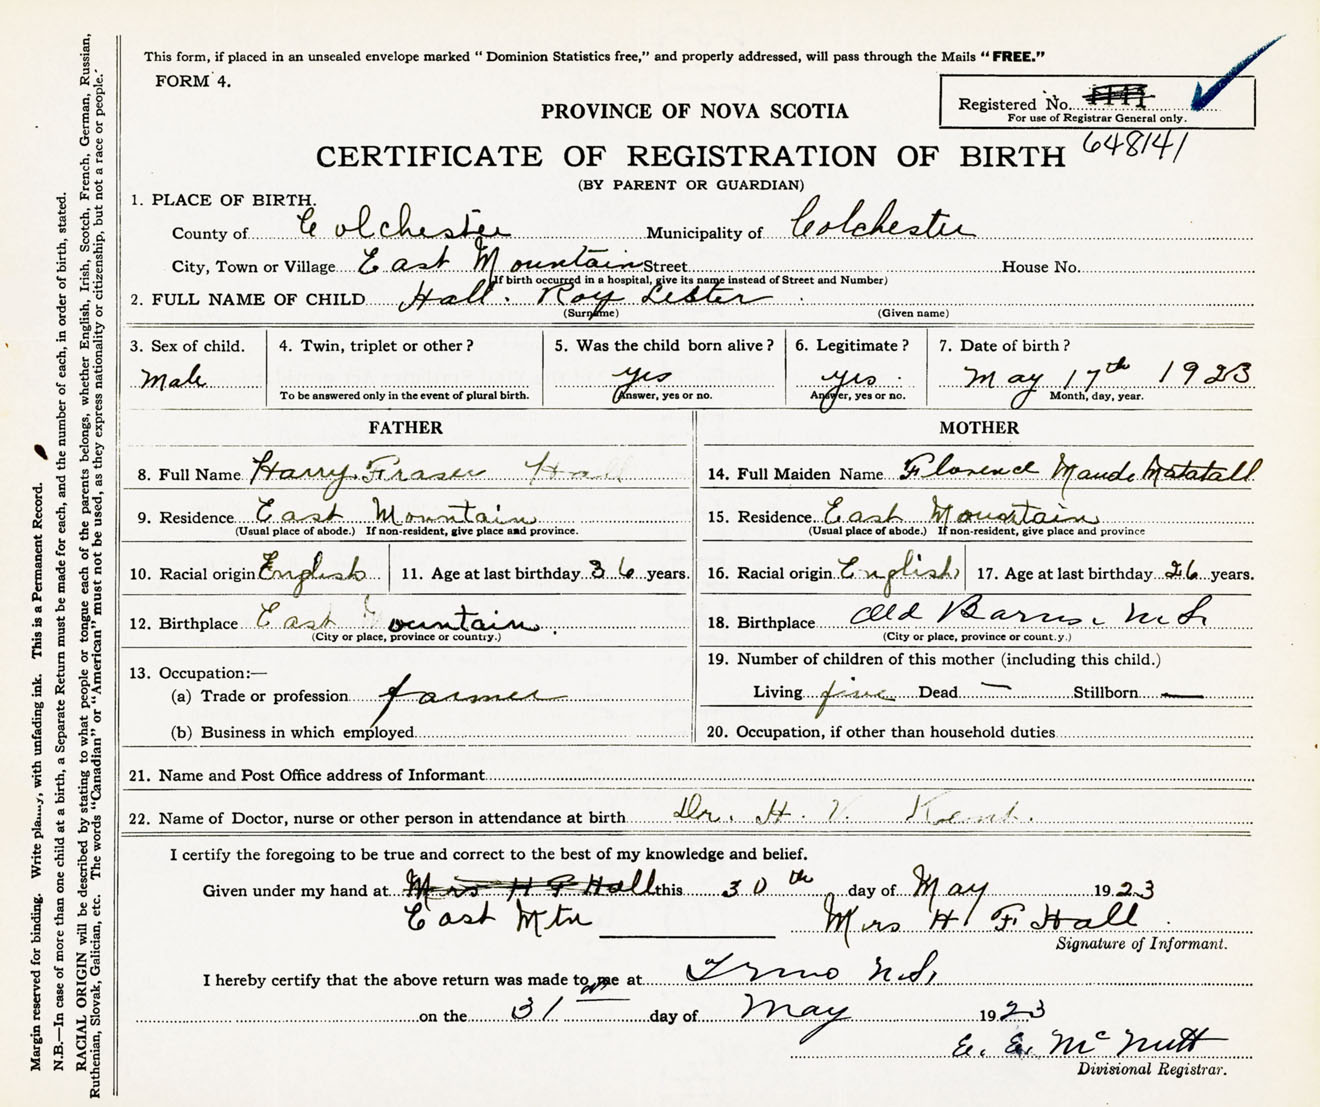 This form, if placed in an unsealed envelope marked “ Dominion Statistics free,” and properly addressed, will pass through the Mails “ FREE.”
FORM 4.
Registered No.
For use of Registrar General only.
648141
PROVINCE OF NOVA SCOTIA
CERTIFICATE OF REGISTRATION OF BIRTH
(BY PARENT OR GUARDIAN)
1. PLACE OF BIRTH.
County of Colchester Municipality of Colchester
City, Town or Village East Mountain Street House No.
(If birth occurred in a hospital, give its name instead of Street and Number)
2. FULL NAME OF CHILD Hall. Roy Lester
(Surname) (Given name)
3. Sex of child. 4. Twin, triplet or other? 5. Was the child born alive? 6. Legitimate? 7. Date of birth?
Male yes yes May 17th 1923
To be answered only in the event of plural birth. (Answer, yes or no. Answer, yes or no. Month, day, year.
FATHER MOTHER
8. Full Name Harry Fraser Hall 14. Full Maiden Name Florence Maude Matatall
9. Residence East Mountain 15. Residence East Mountain
(Usual place of abode.) If non-resident, give place and province. (Usual place of abode.) If non-resident, give place and province
10. Racial origin English 11. Age at last birthday 36 years. 16. Racial origin English 17. Age at last birthday 26 years.
12. Birthplace East Mountain. 18. Birthplace Old Barns, N.S.
(City or place, province or country.) (City or place, province or count.y.)
13. Occupation:— 19. Number of children of this mother (including this child.)
(a) Trade or profession farmer Living five Dead — Stillborn —
(b) Business in which employed 20. Occupation, if other than household duties
21. Name and Post Office address of Informant
22. Name of Doctor, nurse or other person in attendance at birth Dr. H. V. Kent.
I certify the foregoing to be true and correct to the best of my knowledge and belief.
Given under my hand at Mrs H F Hall this 30th day of May 1923
East Mtn Mrs H F Hall
Signature of Informant.
I hereby certify that the above return was made to me at Truro N.S.
on the 31st day of May 1923
E. E. McNutt
Divisional Registrar.
Margin reserved for binding. Write plainly, with unfading ink. This is a Permanent Record.
N.B.—In case of more than one child at a birth, a Separate Return must be made for each, and the number of each, in order of birth, stated.
RACIAL ORIGIN will be described by stating to what people or tongue each of the parents belongs, whether English, Irish, Scotch, French, German, Russian,
Ruthenian, Slovak, Galician, etc. The words “Canadian” or “American” must not be used, as they express nationality or citizenship, but not a race or people.